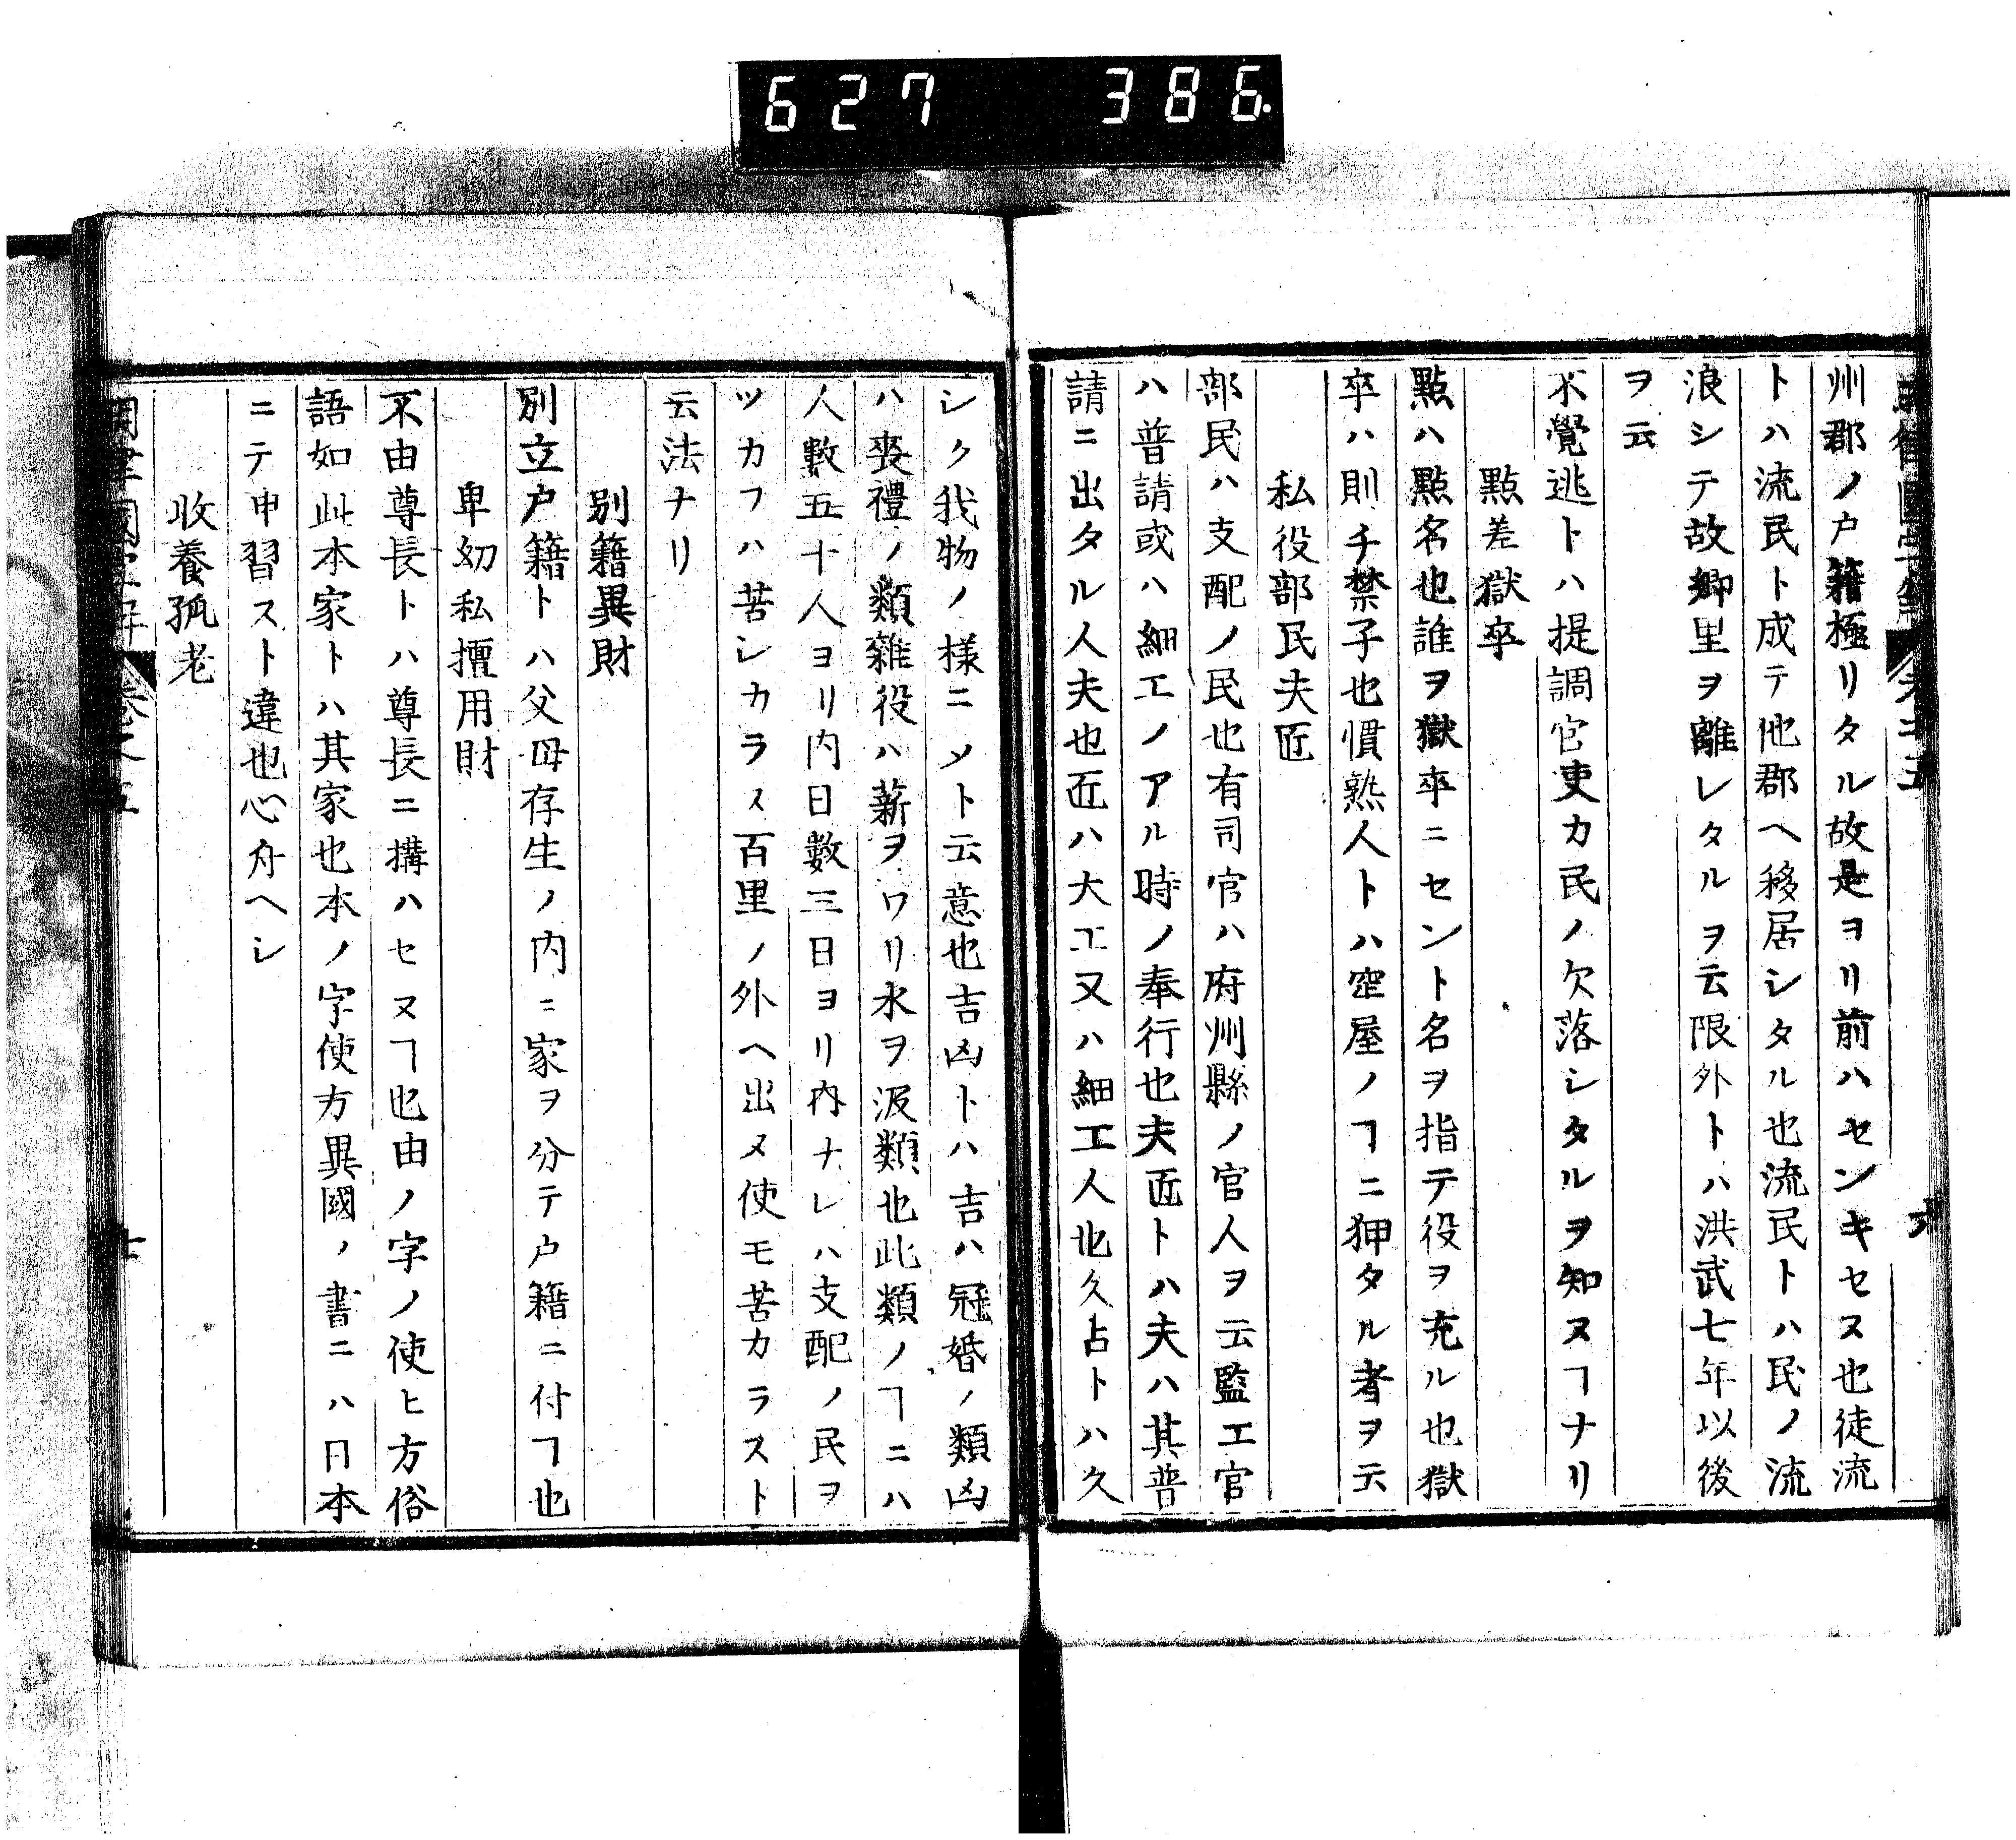 627 386
州郡ノ户籍極リタル故是ヨリ前ハセンキセヌ也徒流
トハ流民ト成テ他郡ヘ移居シタル也流民トハ民ノ流
浪シテ故鄉里ヲ離レタルヲ云限外トハ洪武七年以後
ヲ云
不覺逃トハ提調官吏カ民ノ欠落シタルヲ知ヌヿナリ
點差獄卒
點ハ點名也誰ヲ獄卒ニセント名ヲ指テ役ヲ充ル也獄
卒ハ則チ禁子也慣熟人トハ空屋ノヿニ狎タル者ヲ云
私役部民夫匠
部民ハ支配ノ民也有司官ハ府州縣ノ官人ヲ云監工官
ハ普請或ハ細工ノアル時ノ奉行也夫匠トハ夫ハ其普
請ニ出タル人夫也匠ハ大工又ハ細工人也久占トハ久
シク我物ノ様ニメト云意也吉凶トハ吉ハ冠婚ノ類凶
ハ喪禮ノ類雜役ハ薪ヲワリ水ヲ汲類也此類ノヿニハ
人數五十人ヨリ内日數三日ヨリ内ナレハ支配ノ民ヲ
ツカフハ苦シカラス百里ノ外ヘ出ヌ使モ苦カラスト
云法ナリ
別籍異財
別立户籍トハ父母存生ノ内ニ家ヲ分テ户籍ニ付ヿ也
卑幼私擅用財
不由尊長トハ尊長ニ搆ハセヌヿ也由ノ字ノ使ヒ方俗
語如此本家トハ其家也本ノ字使方異國ノ書ニハ日本
ニテ申習スト違也心弁ヘシ
收養孤老